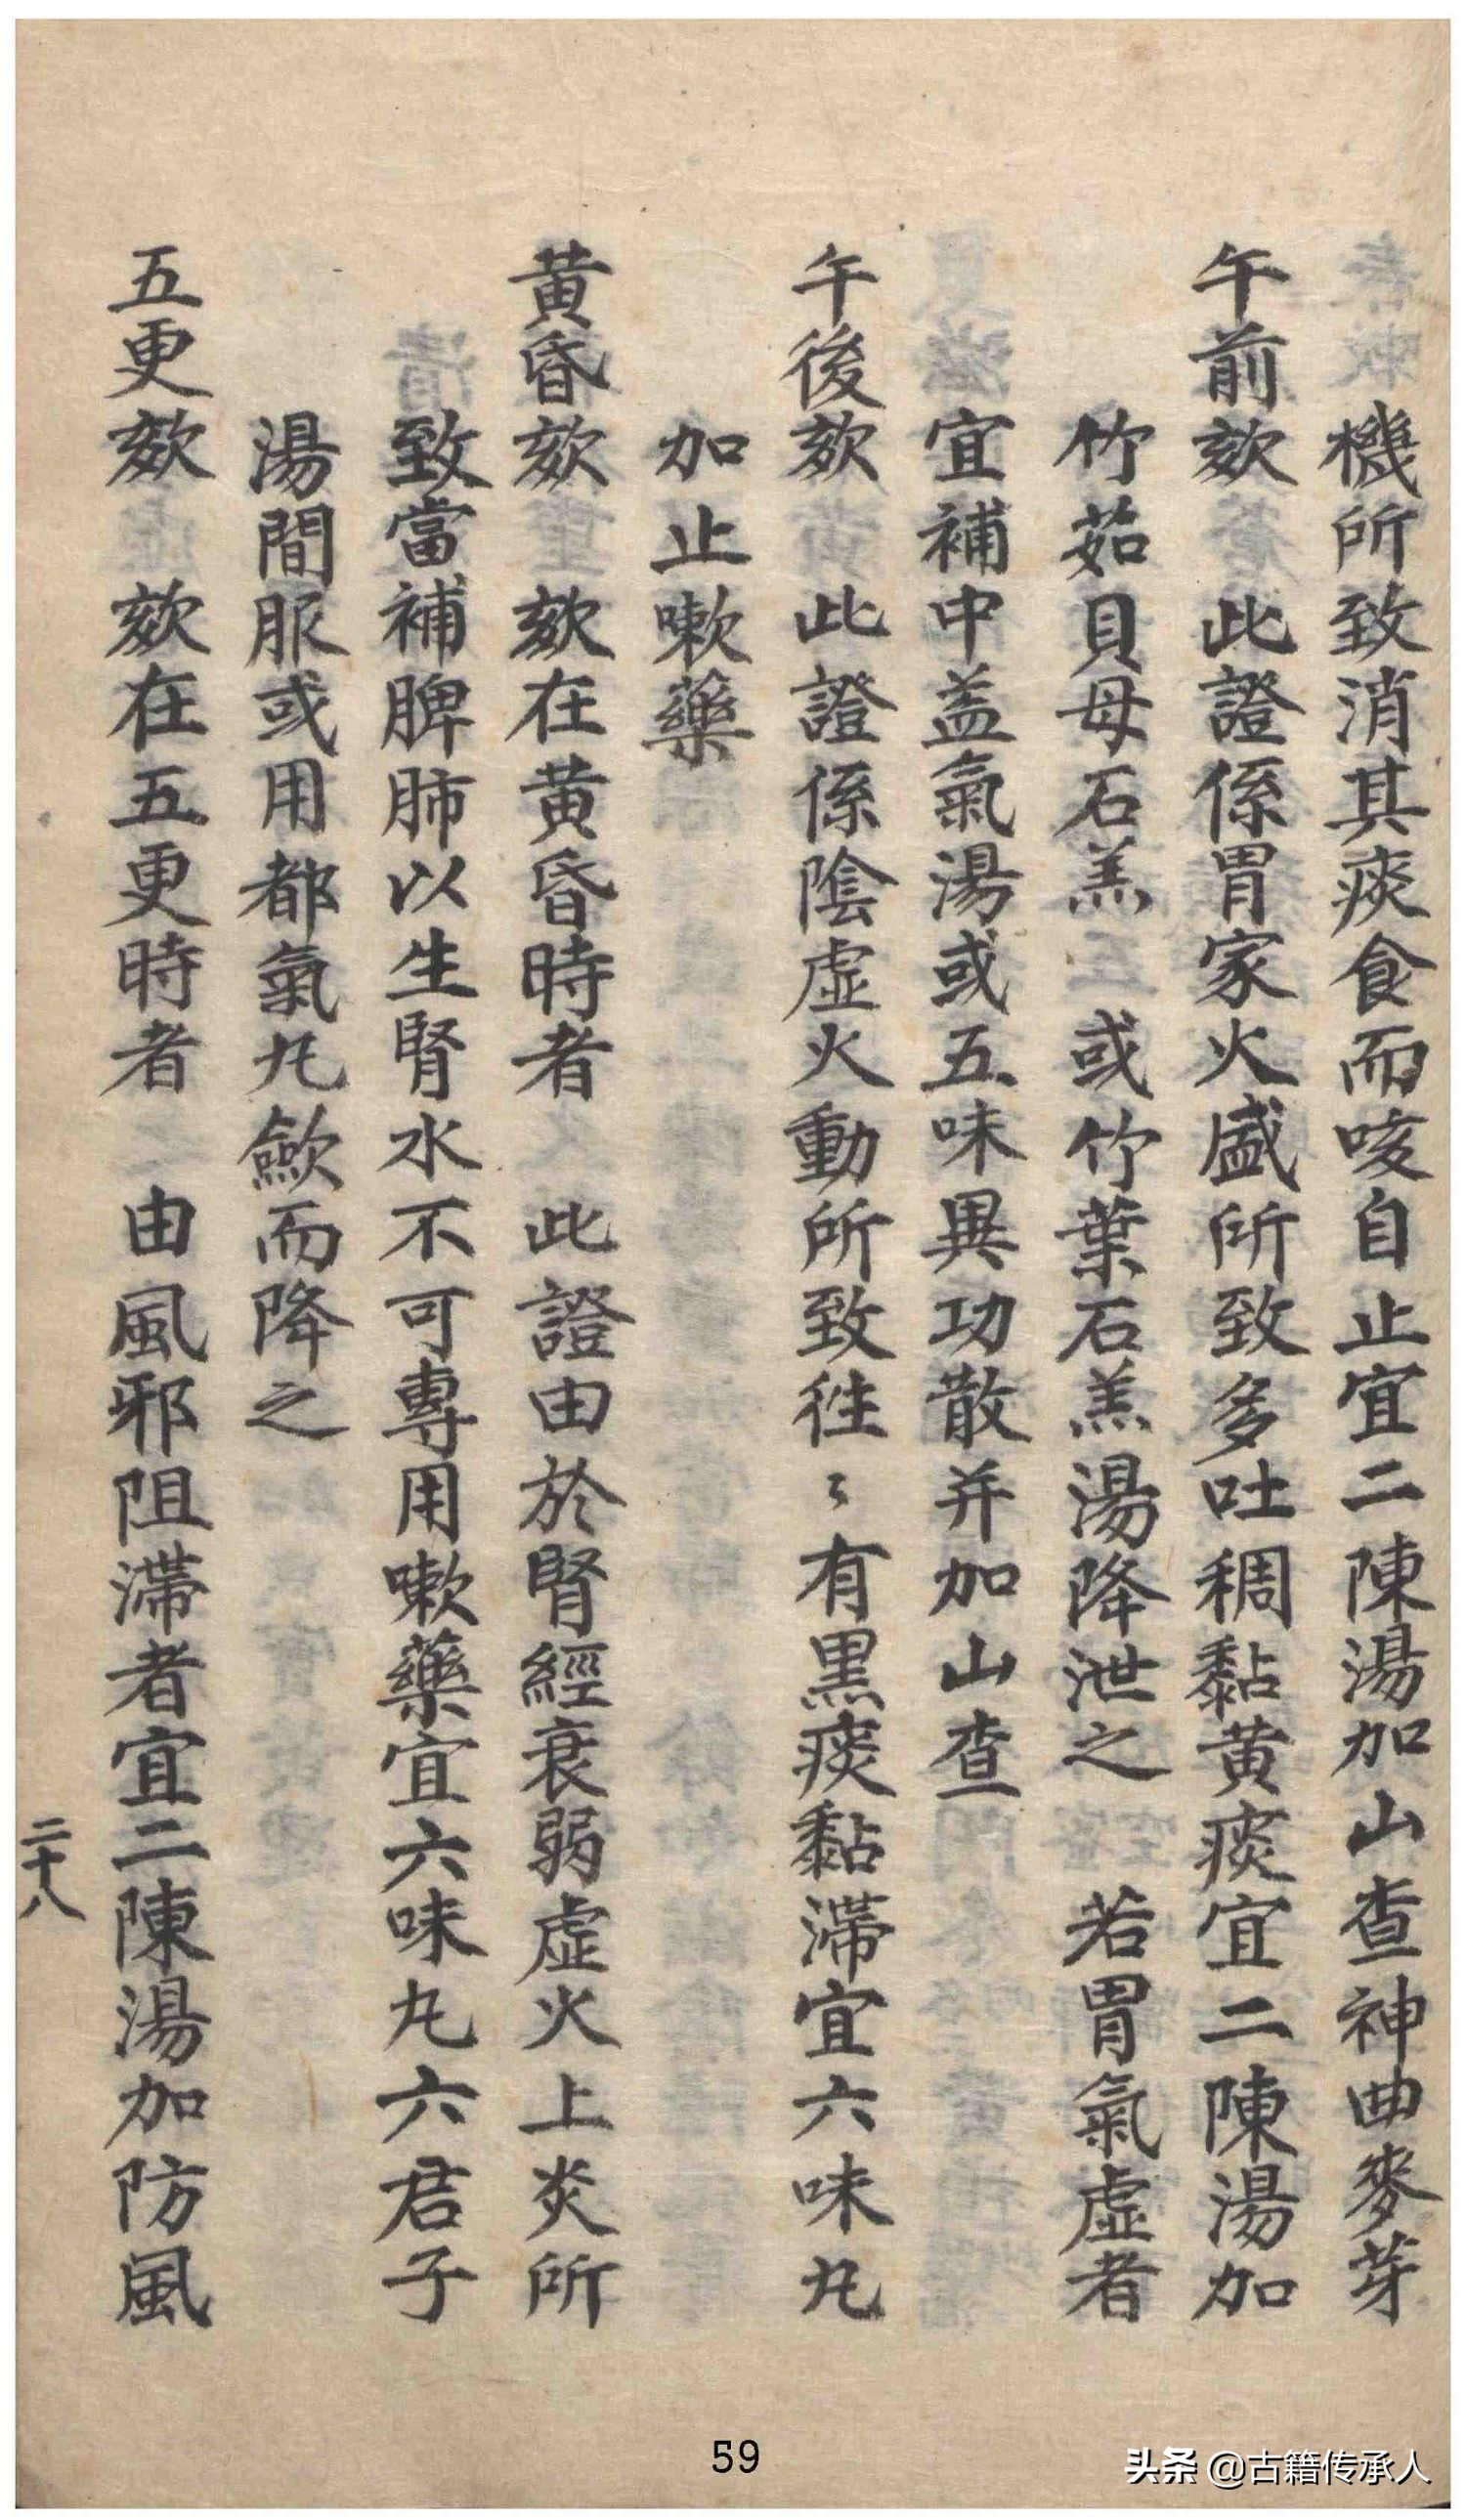 機所致消其痰食而咳自止宜二陳湯加山查神曲麥芽
午前欬　此證係胃家火盛所致多吐稠黏黄痰宜二陳湯加
竹茹貝母石羔　或竹葉石羔湯降泄之　若胃氣虚者
宜補中益氣湯或五味異功散并加山查
午後欬　此證係陰虚火動所致徃〻有黒痰黏滯宜六味丸
加止嗽藥
黄昏欬　欬在黄昏時者　此證由於腎經衰弱虚火上炎所
致當補脾肺以生腎水不可專用嗽藥宜六味丸六君子
湯間服或用都氣丸斂而降之
五更欬　欬在五更時者　由風邪阻滯者宜二陳湯加防風
二十八
59
头条 @古籍传承人